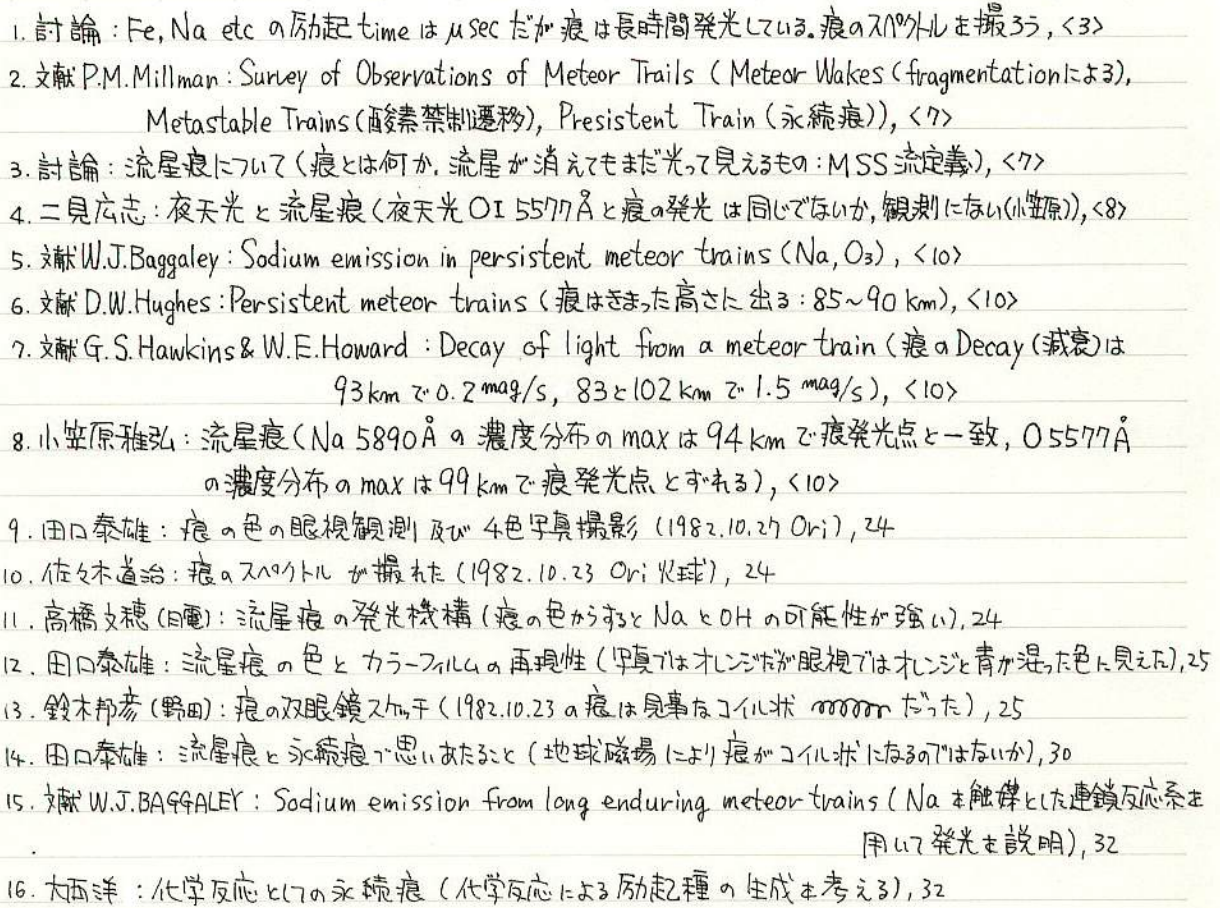 1. 討論：Fe, Na etc の励起 time は μsec だが痕は長時間発光している。痕のスペクトルを撮ろう, <3>
2. 文献 P.M.Millman : Survey of Observations of Meteor Trails ( Meteor Wakes (fragmentationによる),
Metastable Trains (酸素禁制遷移), Presistent Train (永続痕)), <7>
3. 討論：流星痕について (痕とは何か. 流星が消えてもまだ光って見えるもの：MSS流定義), <7>
4. 二見広志：夜天光と流星痕 (夜天光 OI 5577Åと痕の発光は同じでないか, 観測にない(小笠原)), <8>
5. 文献 W.J.Baggaley : Sodium emission in persistent meteor trains (Na, O₃), <10>
6. 文献 D.W.Hughes : Persistent meteor trains (痕はきまった高さに出る：85~90 km), <10>
7. 文献 G.S.Hawkins & W.E.Howard : Decay of light from a meteor train (痕の Decay (減衰)は
93km で 0.2 mag/s, 83と102 km で 1.5 mag/s), <10>
8. 小笠原雅弘：流星痕 (Na 5890Å の濃度分布の max は 94 km で痕発光点と一致, O 5577Å
の濃度分布の max は 99 km で痕発光点とずれる), <10>
9. 田口泰雄：痕の色の眼視観測及び4色写真撮影 (1982.10.27 Ori), 24
10. 佐々木道治：痕のスペクトルが撮れた (1982.10.23 Ori 火球), 24
11. 高橋文穂 (日電)：流星痕の発光機構 (痕の色からすると Na と OH の可能性が強い), 24
12. 田口泰雄：流星痕の色とカラーフィルムの再現性 (写真ではオレンジだが眼視ではオレンジと青が混った色に見えた), 25
13. 鈴木邦彦 (野田)：痕の双眼鏡スケッチ (1982.10.23 の痕は見事なコイル状 だった), 25
14. 田口泰雄：流星痕と永続痕で思いあたること (地球磁場により痕がコイル状になるのではないか), 30
15. 文献 W.J.BAGGALEY : Sodium emission from long enduring meteor trains (Na を触媒とした連鎖反応系を
用いて発光を説明), 32
16. 大西洋：化学反応としての永続痕 (化学反応による励起種の生成を考える), 32